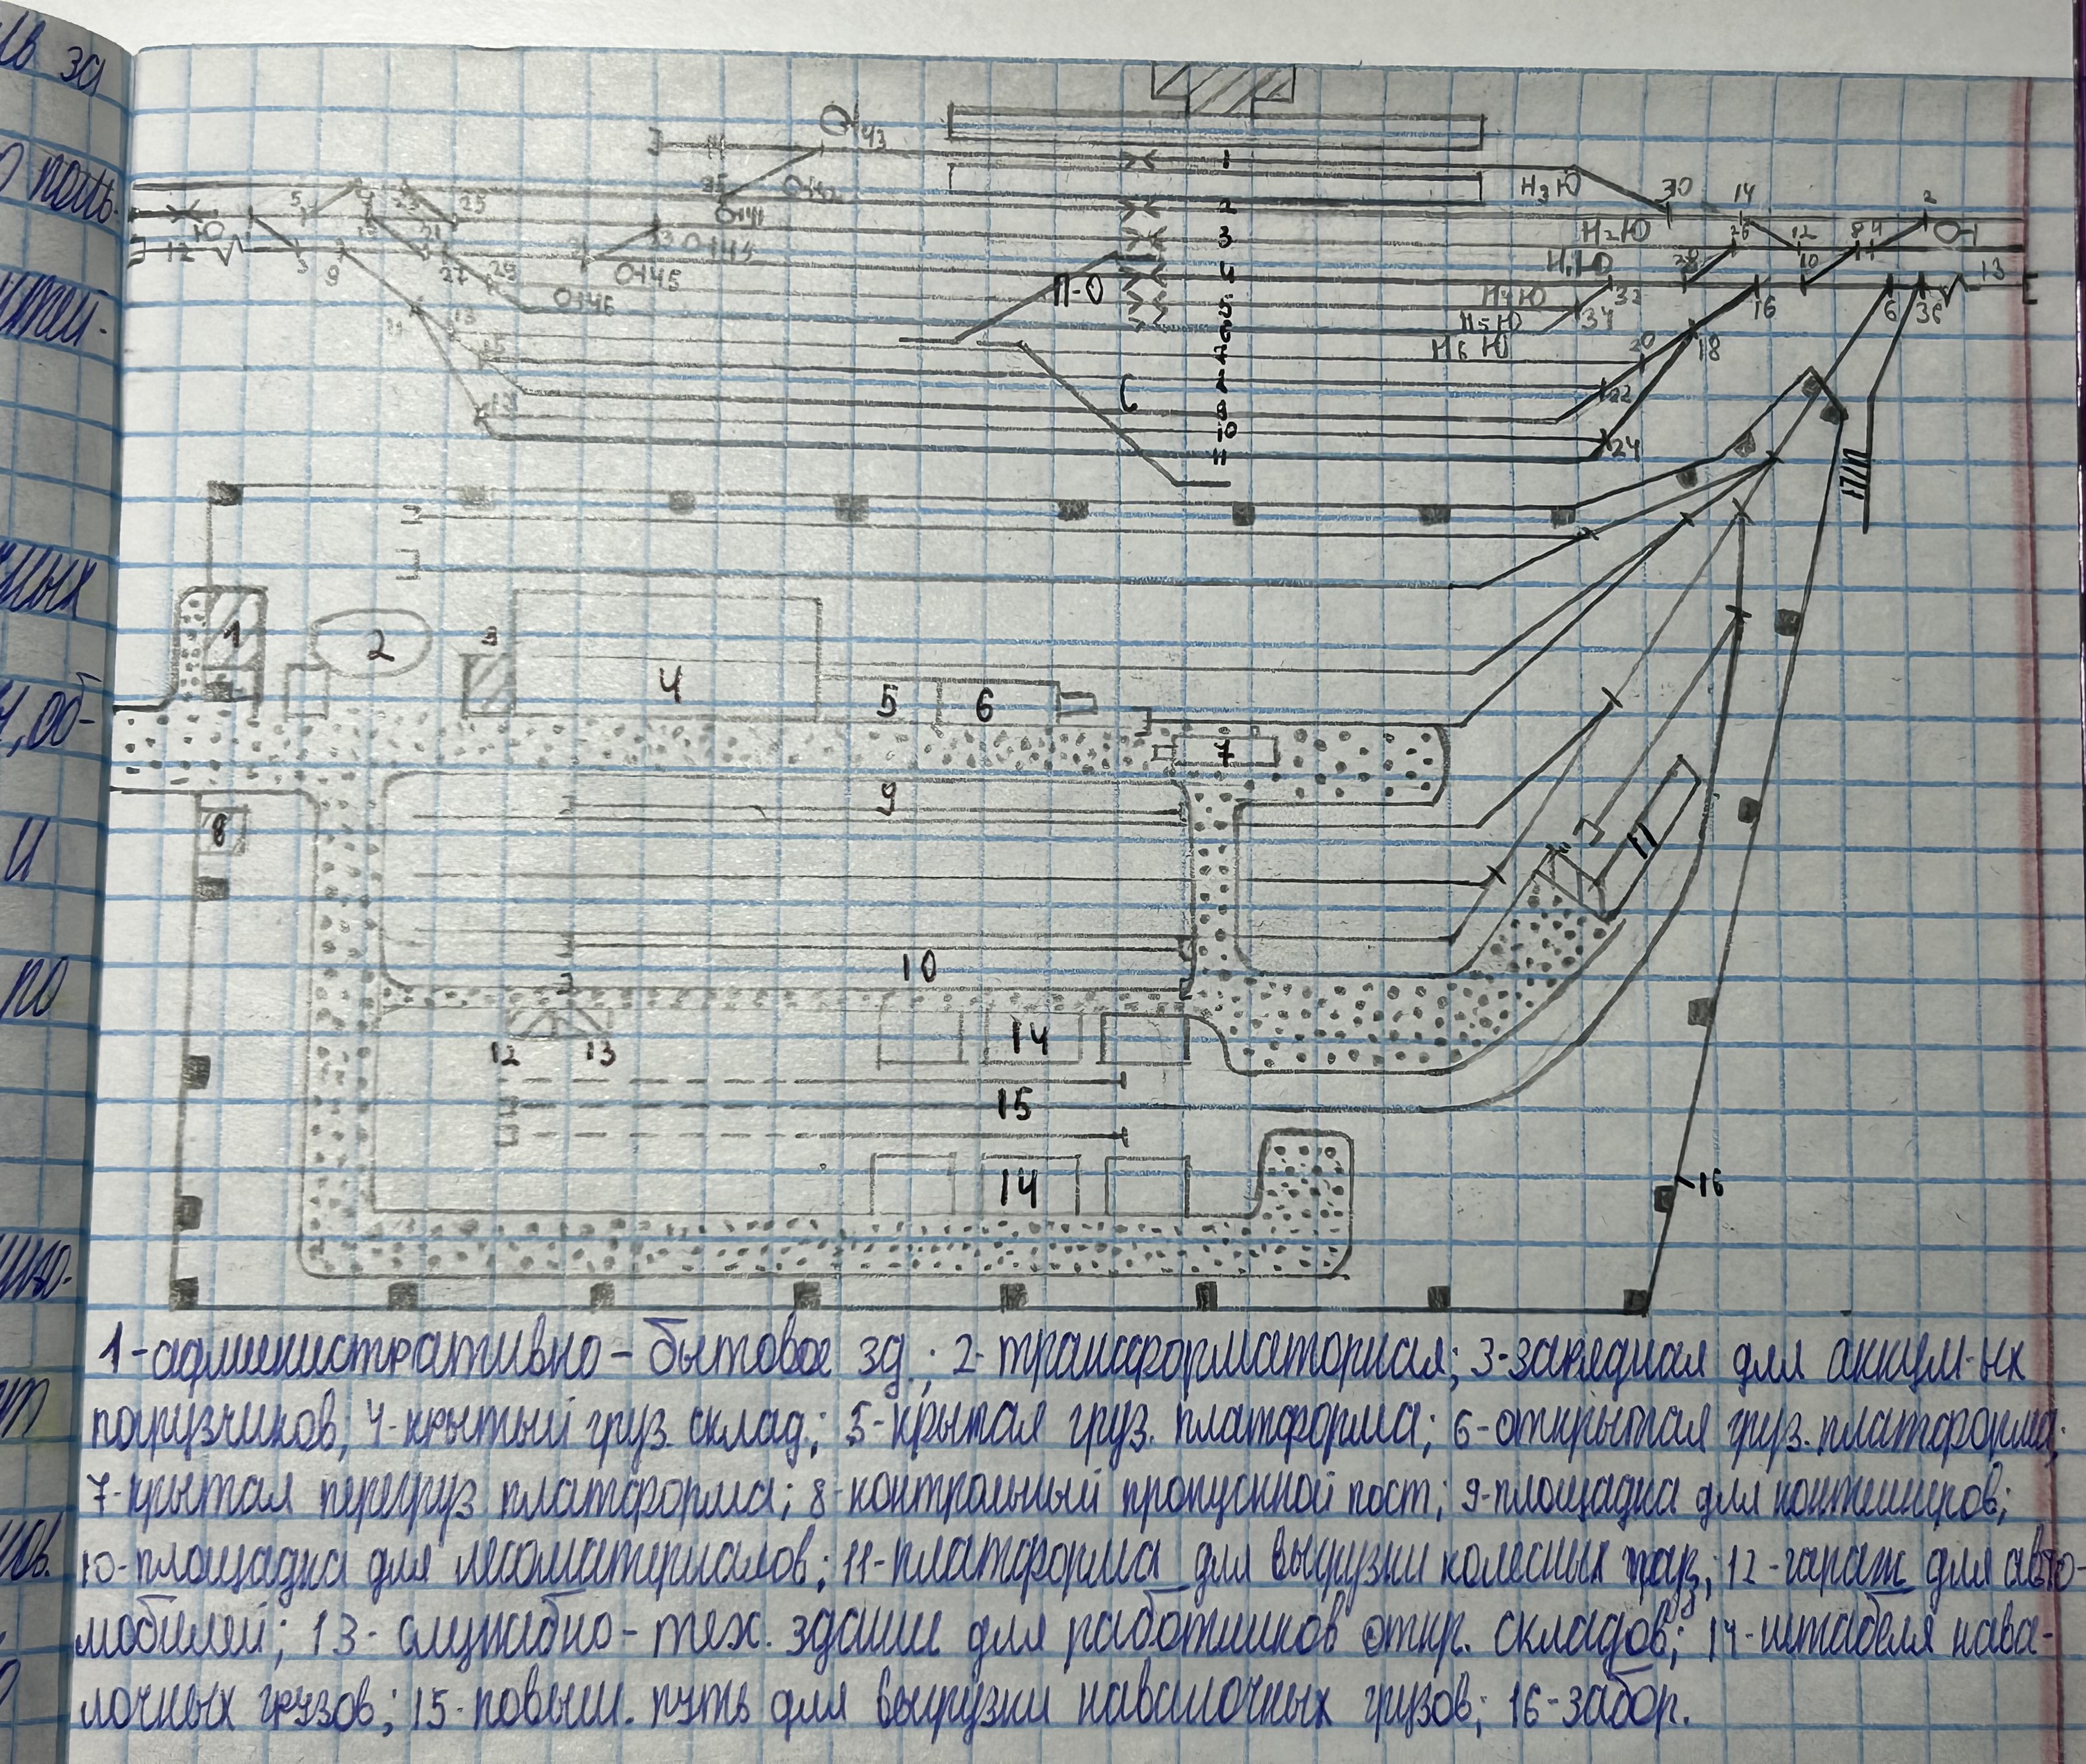 Ив за
О поль-
ных
, об-
и
по
43
1
35
О142
Н3Ю
30
14
2
5
23
25
О141
2
Н2Ю
26
12
8
4
О-1
Ю
21
33
О143
3
Н1Ю
28
10
13
12
3
9
27
29
О145
П-О
4
Н4Ю
32
16
6
36
О146
5
Н5Ю
34
13
6
Н6Ю
18
15
20
22
8
10
24
11
1
2
3
4
5
6
7
8
9
11
10
12
13
14
15
14
16
1-административно-бытовое зд.; 2-трансформаторная; 3-зарядная для аккум-ых
погрузчиков; 4-крытый груз. склад.; 5-крытая груз. платформа; 6-открытая груз. платформа;
7-крытая перегруз платформа; 8-контрольный пропускной пост; 9-площадка для контейнеров;
10-площадка для лесоматериалов; 11-платформа для выгрузки колесных груз; 12-гараж для авто-
мобилей; 13-служебно-тех. здание для работников откр. складов; 14-штабеля нава-
лочных грузов; 15-повыш. путь для выгрузки навалочных грузов; 16-забор.